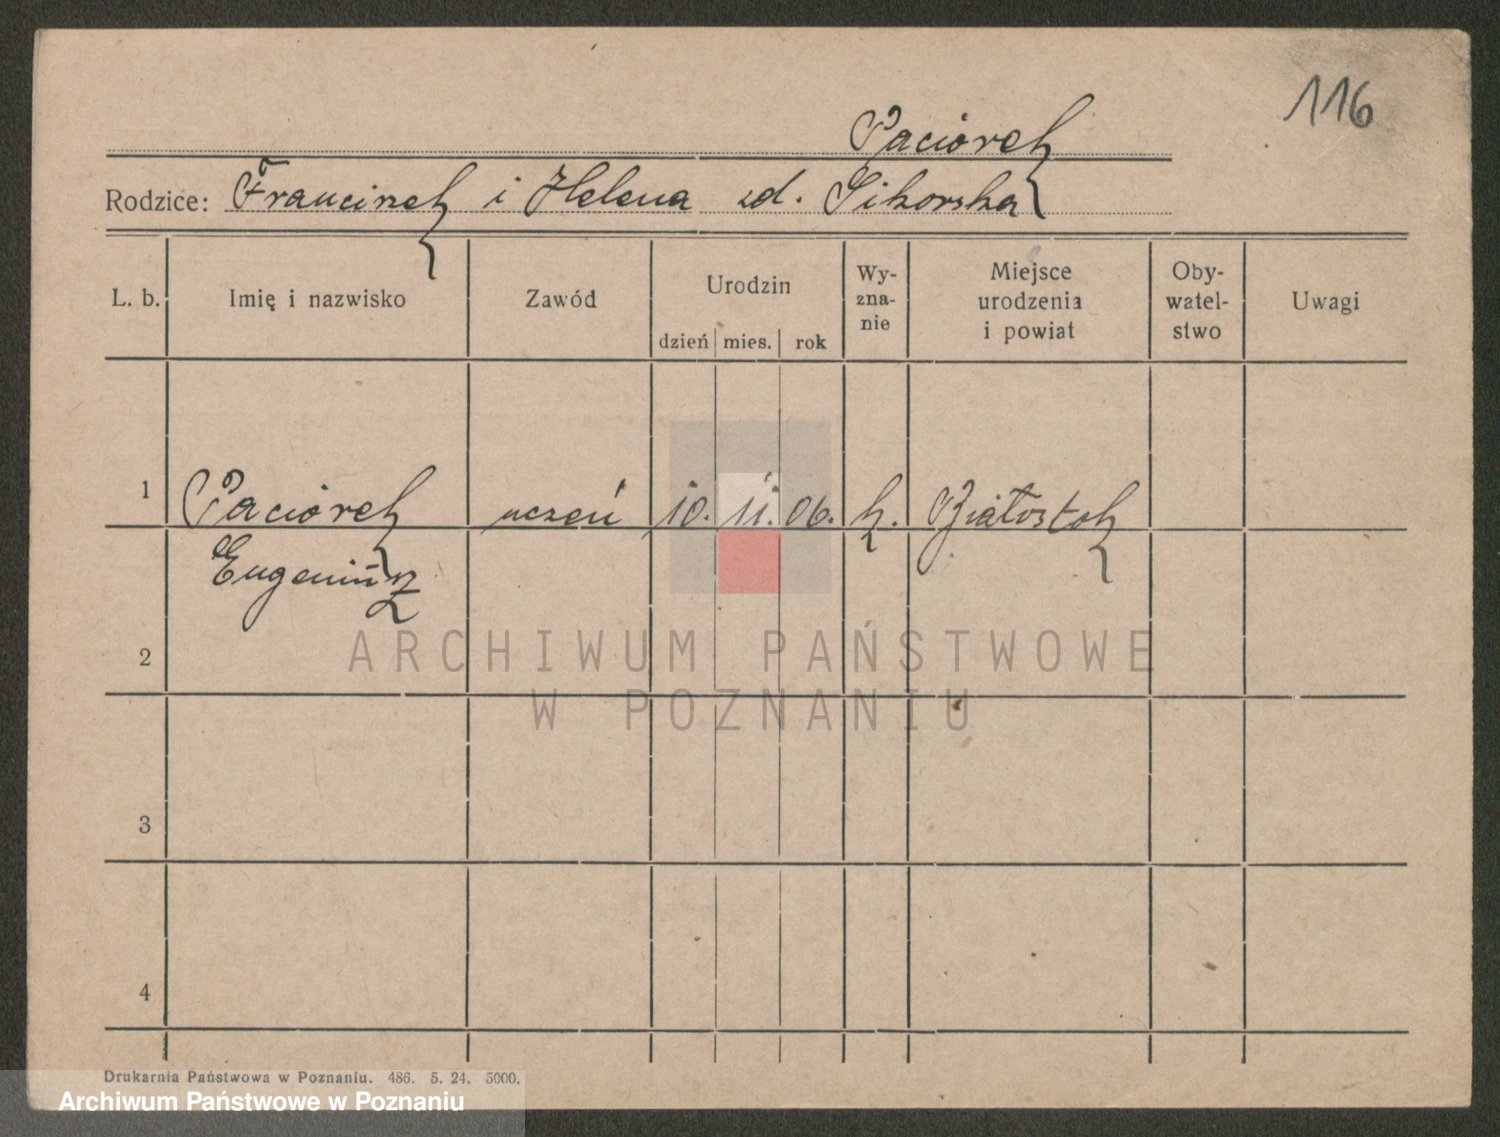 116
Paciorek
Rodzice: Franciszek i Helena zd. Sikorska
L. b. Imię i nazwisko Zawód Urodzin dzień mies. rok Wy-zna-nie Miejsce urodzenia i powiat Oby-watel-stwo Uwagi
1 Paciorek uczeń 10. 11. 06. k. Białystok
Eugeniusz
2
ARCHIWUM PAŃSTWOWE
W POZNANIU
3
4
Drukarnia Państwowa w Poznaniu. 486. 5. 24. 5000.
Archiwum Państwowe w Poznaniu